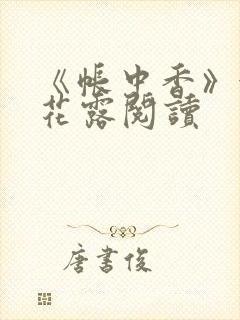 《帐中香》
花露閱讀
唐書俊